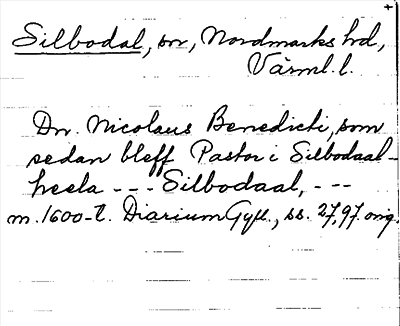 +
Silbodal, sn, Nordmarks hd,
Värml. l.
Dn. Nicolaus Benedicti, som
sedan bleff Pastor i Silbodaal-
heela --- Silbodaal, ---
m. 1600-t. Diarium Gyll., ss. 27, 97. orig.